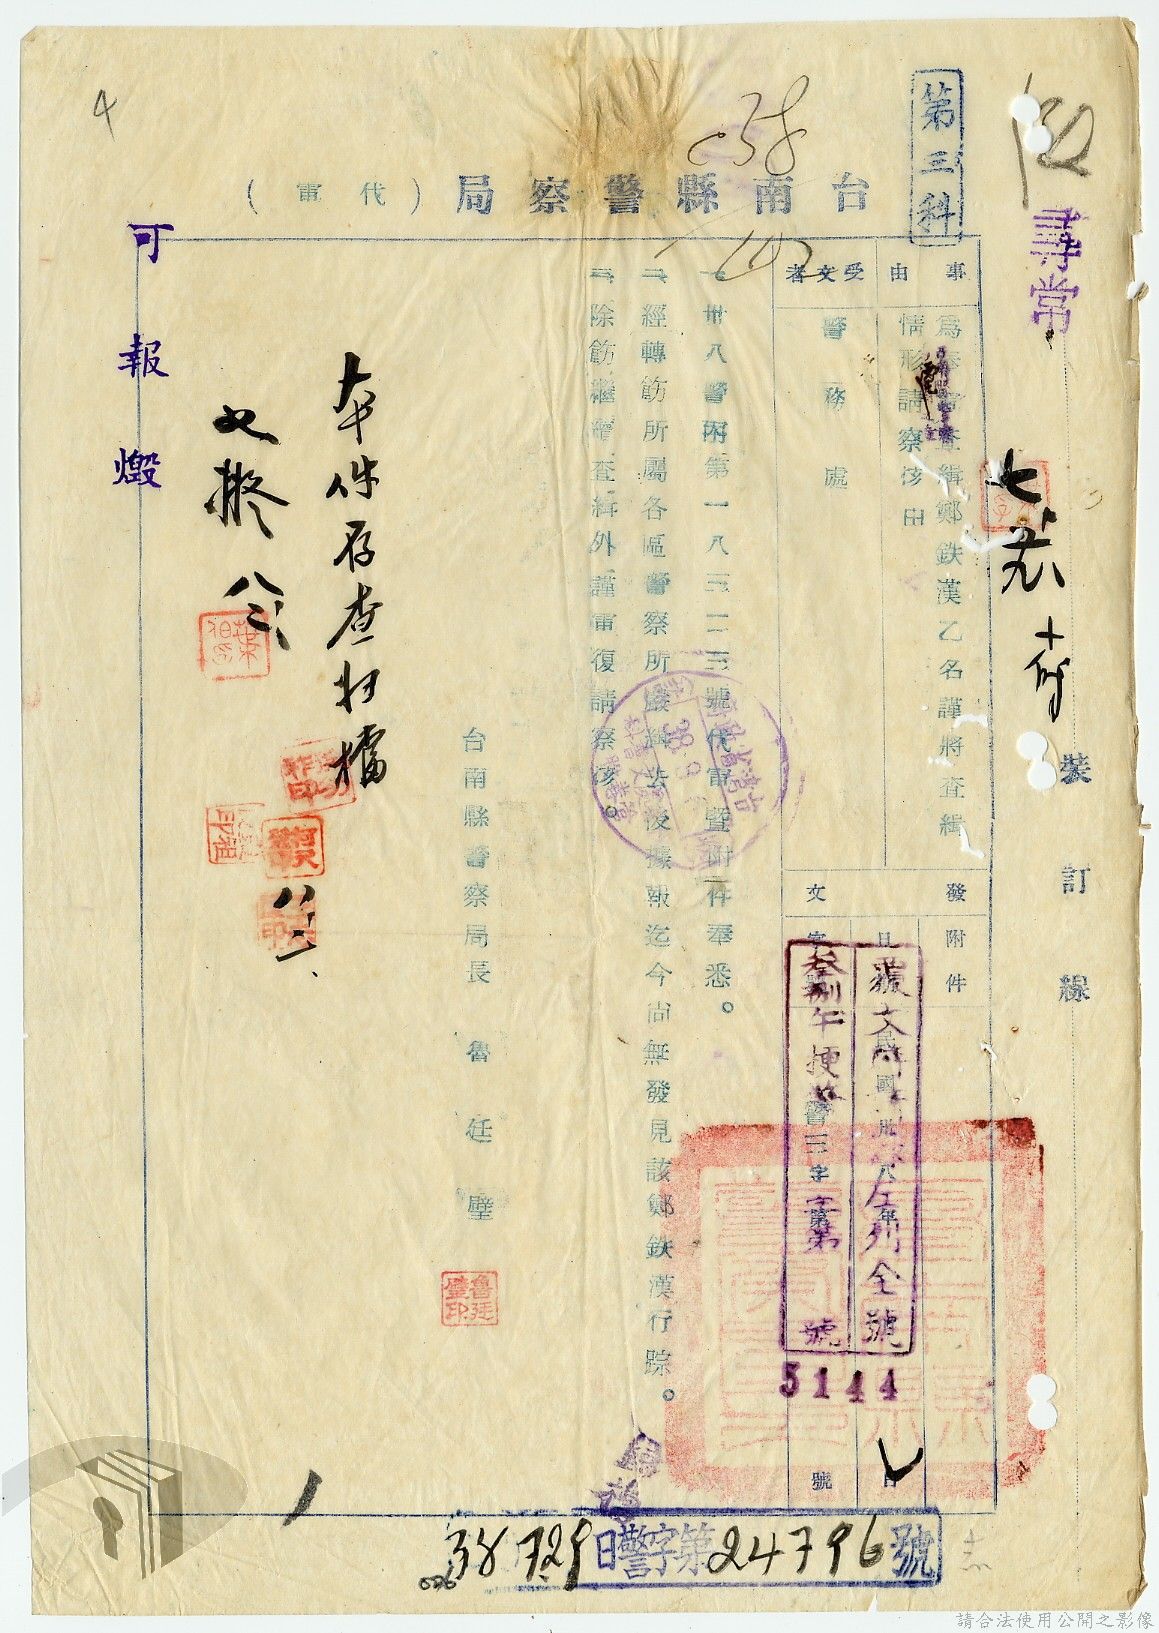 第三科
尋常
台南縣警察局(代電)
事由
為奉電查緝鄭鉄漢乙名謹將查緝
情形請察核由
受文者
警務處
發文
附件
日
民國卅八年
日
覆文請註明左列全號
字
叁捌午梗警三字第
號
號
5144
一、卅八警丙第一八三一二三號代電暨附件奉悉。
二、經轉飭所屬各區警察所嚴緝去後據報迄今尚無發見該鄭鉄漢行踪。
三、除飭繼續查緝外謹電復請察核。
台南縣警察局長 魯廷璧
魯廷璧印
本件存查歸檔
可報燬
裝訂線
38 729日警字第24796號
4
請合法使用公開之影像